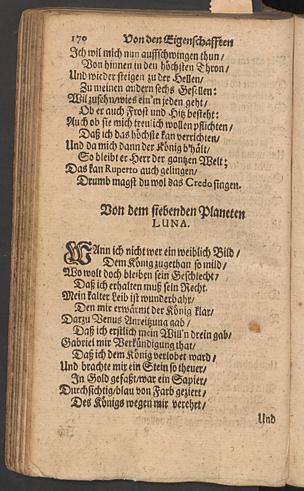 170 Von den Eigenschafften
Ich wil mich nun auffschwingen thun /
Von hinnen in den höchsten Thron /
Und wieder steigen zu der Hellen /
Zu meinen andern sechs Gesellen:
Wil zusehn / wies ein'm jeden geht /
Ob er auch Frost und Hitz besteht:
Auch ob sie mich treulich wollen pflichten /
Daß ich das höchste kan verrichten /
Und da mich dann der König b'hält /
So bleibt er Herr der gantzen Welt;
Das kan Ruperto auch gelingen /
Drumb magst du wol das Credo singen.
Von dem siebenden Planeten
LUNA.
WAnn ich nicht wer ein weiblich Bild /
Dem König zugethan so mild /
Wo wolt doch bleiben sein Geschlecht /
Daß ich erhalten muß sein Recht.
Mein kalter Leib ist wunderbahr /
Den mir erwärmt der König klar /
Darzu Venus Anreitzung gab /
Daß ich erstlich mein Will'n drein gab /
Gabriel mir Verkündigung that /
Daß ich dem König verlobet ward /
Und brachte mir ein Stein so theuer /
In Gold gefaßt / war ein Sapier /
Durchsichtig / blau von Farb geziert /
Des Königs wegen mir verehrt /
Und